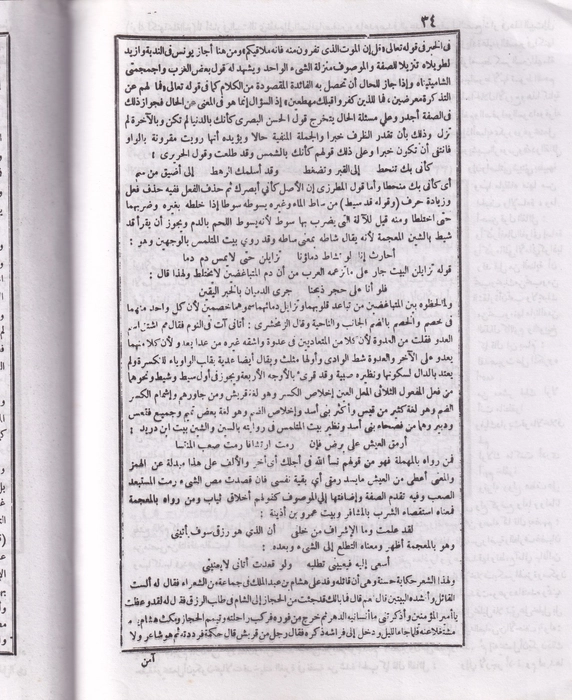 ٣٤
فى الخبر فى قوله تعالى «قل إن الموت الذى تفرون منه فانه ملاقيكم» ومن هنا أجاز يونس فى الندبة وازيد
لطويلاه تنزيلا للصفة والموصوف منزلة الشىء الواحد ويشهد له قول بعض العرب واجمجمتى
الشاميتيناه وإذا جاز للحال أن تحصل به الفائدة المقصودة من الكلام كما فى قوله تعالى «فما لهم عن
التذكرة معرضين، فما للذين كفروا قبلك مهطعين» إذ السؤال إنما هو فى المعنى عن الحال فجواز ذلك
فى الصفة أجدر وعلى مسئلة الحال يتخرج قول الحسن البصرى كأنك بالدنيا لم تكن وبالآخرة لم
تزل وذلك بأن تقدر الظرف خبرا والجملة المنفية حالا ويؤيده أنها رويت مقرونة بالواو
فانتفى أن تكون خبرا وعلى ذلك قولهم كأنك بالشمس وقد طلعت وقول الحريرى :
كأنى بك تنحط إلى القبر وتنضغط وقد أسلمك الرهط إلى أضيق من سم
أى كأنى بك منحطا وأما قول المطرزى إن الأصل كأنى أبصرك ثم حذف الفعل ففيه حذف فعل
وزيادة حرف (وقوله قد سيط) من ساط الماء وغيره يسوطه سوطا إذا خلطه بغيره وضربهما
حتى اختلطا ومنه قيل للآلة التى يضرب بها سوط لأنه يسوط اللحم بالدم ويجوز أن يقرأ قد
شيط بالشين المعجمة لأنه يقال شاطه بمعنى ساطه وقد روي بيت المتلمس بالوجهين وهو :
أحارث إنا لو تشاط دماؤنا تزايلن حتى لا يمس دم دما
قوله تزايلن البيت جار على ما تزعمه العرب من أن دم المتباغضين لا يختلط ولهذا قال :
فلو أنا على حجر ذبحنا جرى الدميان بالخبر اليقين
ولما لحظوه بين المتباغضين من تباعد قلوبهما وتزايل دمائهما سموهما خصمين لأن كل واحد منهما
فى خصم والخصم بالضم الجانب والناحية وقال الزمخشرى : أتانى آت فى النوم فقال مم اشتق اسم
العدو فقلت من العدوة لأن كلا من المتعاديين فى عدوة واشقه غيره من عدا يعدو لأن كلا منهما
يعدو على الآخر والعدوة شط الوادى وأولها مثلث ويقال أيضا عدية بقلب الواو ياء للكسرة ولم
يعتد بالدال لسكونها ونظيره صبية وقد قرئ بالأوجه الأربعة ويجوز فى أول سيط وشيط ونحوهما
من فعل المفعول الثلاثى المعل العين إخلاص الكسر وهو لغة قريش ومن جاورهم وإشمام الكسر
الضم وهو لغة كثير من قيس وأكثر بنى أسد وإخلاص الضم وهو لغة بعض تميم وجميع فقعس
ودبير وهما من فصحاء بنى أسد ونظير بيت المتلمس فى روايته بالسين والشين بيت ابن دريد :
أرمق العيش على برض فإن رمت ارتشافا رمت صعب المنتسا
فمن رواه بالمهملة فهو من قولهم نسأ الله فى أجلك أى أخر والألف على هذا مبدلة عن الهمز
والمعنى أعطى من العيش ما يسد رمقى أى بقية نفسى فان قصدت مص الشىء رمت المستبعد
الصعب وفيه تقدم الصفة وإضافتها إلى الموصوف كقولهم أخلاق ثياب ومن رواه بالمعجمة
فمعناه استقصاء الشرب بالمشافر وبيت عمرو بن أذينة :
لقد علمت وما الإشراف من خلقى أن الذى هو رزقى سوف يأتينى
وهو بالمعجمة أظهر ومعناه التطلع إلى الشىء وبعده :
أسعى إليه فيعنينى تطلبه ولو قعدت أتانى لا يعنينى
ولهذا الشعر حكاية حسنة وهى أن قائله وفد على هشام بن عبد الملك فى جماعة من الشعراء فقال له ألست
القائل وأنشده البيتين قال نعم قال فما بالك قد جئت من الحجاز إلى الشام فى طالب الرزق فقال له لقد وعظت
يا أمير المؤمنين وأذكرتنى ما أنسانيه الدهر ثم خرج من فوره فركب راحلته وتيمم الحجاز ومكث هشام
مشتغلا عنه فلما جاء الليل ودخل إلى فراشه ذكره فقال رجل من قريش قال حكمة فرددته ثم هو شاعر ولا
آمن